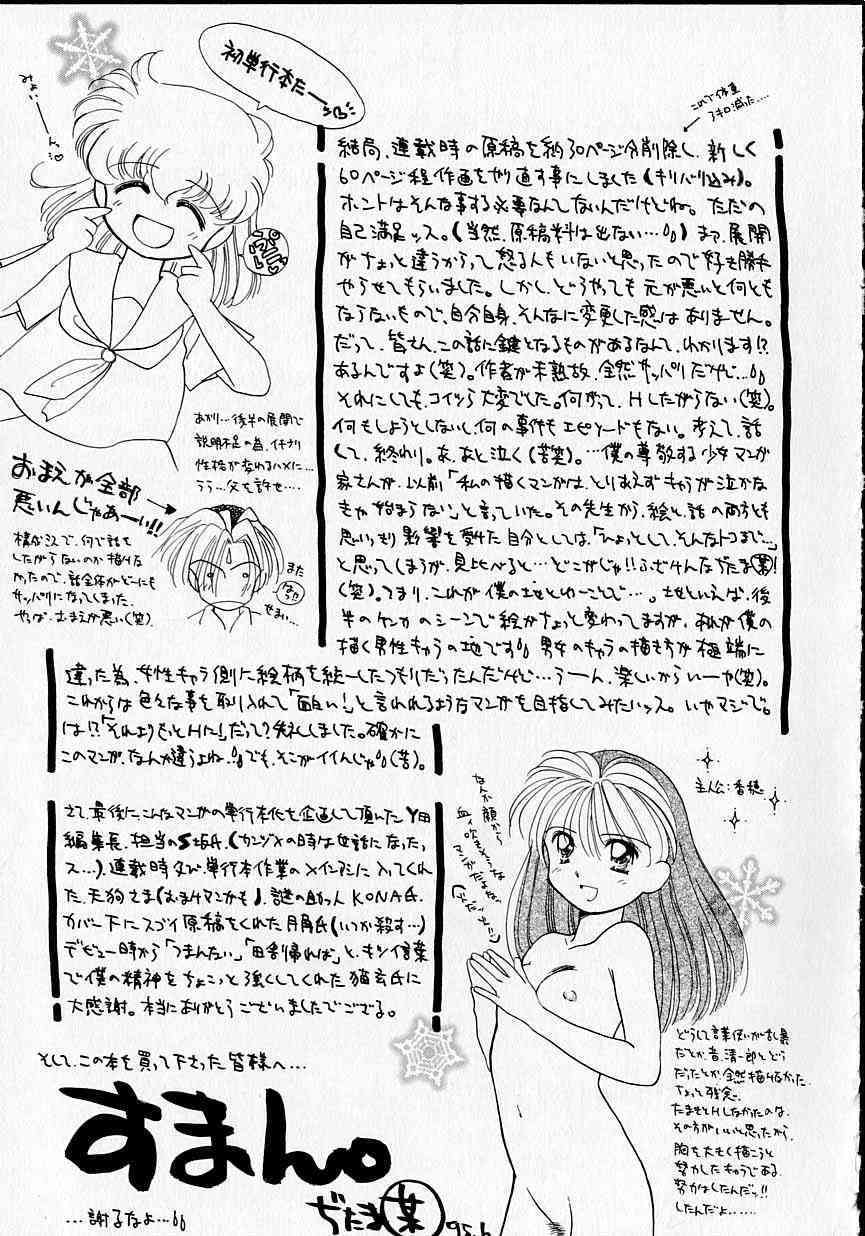 初単行本だー
みょい
んっ♡
こので体重
3キロ減った…
結局、連載時の原稿を約30ページ分削除し、新しく
60ページ程作画をやり直す事にしました(キリバリ込み)。
ホントはそんな事する必要なんてないんだけどね。ただの
自己満足ッス。(当然、原稿料は出ない…)まっ、展開
がちょっと違うからって怒る人もいないと思ったので好き勝手
やらせてもらいました。しかし、どうやっても元が悪いと何とも
ならないもので、自分自身、そんなに変更した感はありません。
だって、皆さん、この話に鍵となるものがあるなんて、わかります!?
あるんですよ(笑)。作者が未熟故、全然サッパリだけど…
それにしても、コイツら大変でした。何がって、Hしたがらない(笑)。
何もしようとしないし、何の事件もエピソードもない。考えて、話
して、終わり。あ、あと泣く(苦笑)。…僕の尊敬する少女マンガ
家さんが、以前「私の描くマンガは、とりあえずキャラが泣かな
きゃ始まらない」と言っていた。その先生から、絵と話のあろとも
思いっきり影響を受けた自分としては、「ひょっとして、そんなトコまで…」
と思ってしまうが、見比べると…どこがじゃ!!ふざけんなぢたま(某)!
(笑)。つまり、これが僕の地とゆーことで…。地といえば、後
半のケンカのシーンで絵がちょっと変わってますが、あれが僕の
描く男性キャラの地です 男女のキャラの描き方が極端に
違った為、女性キャラ側に絵柄を統一したつもりだったんだけど…うーん、楽しいからいーや(笑)。
これからは色々な事を取り入れて「面白い!」と言われるようなマンガを目指してみたいッス。いやマジで。
は!?「それよりもっとHに!」だって?失礼しました。確かに
このマンガ、なんか違うよね、でも、そこがイイんじゃ(苦)。
あかり…後半の展開で
説明不足の為、イキナリ
性格が変わるハメに…
うう…父を許せ…
おまえが全部
悪いんじゃあーい!!
構成状で、何で話を
したがらないのか描けな
かったので、話全体がどーにも
サッパリになってしまった。
やっぱ、おまえが悪い(笑)
また
せまい…
さて、最後にこんなマンガの単行本化を企画して頂いたY田
編集長、担当のS坂氏、(カンヅメの時は世話になったッ
ス…)、連載時及び、単行本作業のメインアシに入ってくれ
た、天狗さま(おまけマンガも)、謎の助っ人KONA氏、
カバー下にスゴイ原稿をくれた月角氏(いつか殺す…)
デビュー時から「つまんない」「田舎帰れば」と、キツイ言葉
で僕の精神をちょこっと強くしてくれた猫玄氏に
大感謝。本当にありがとうございましたでござる。
主人公：香穂
なんか顔から
血ィ吹きそうな
マンガだよなが
どうして言葉使いが乱暴
だとか、昔、清一郎とどう
だったとか、全然描けなかった。
ちょっと残念。
たまきとHしなかったのは、
その方がいいと思ったから
胸を大きく描こうと
努力したキャラである。
努力はしたんだッ!!
したんだよ……
そして、この本を買って下さった皆様へ…
すまん。
…謝るなよ…
ぢたま(某)
95.6